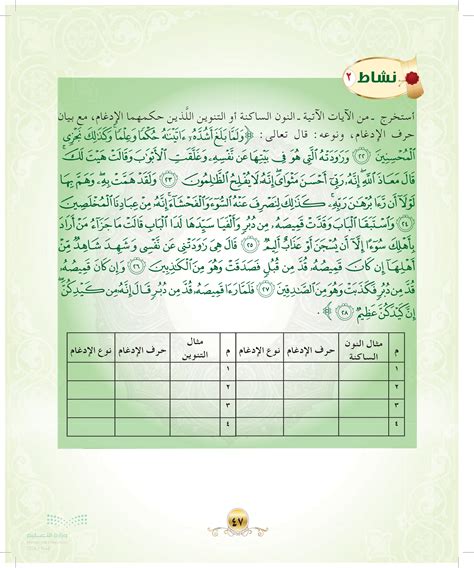 نشاط ٢
أستخرج - من الآيات الآتية - النون الساكنة أو التنوين اللَّذين حكمهما الإدغام، مع بيان
حرف الإدغام، ونوعه: قال تعالى: ﴿وَلَمَّا بَلَغَ أَشُدَّهُۥٓ ءَاتَيْنَٰهُ حُكْمًا وَعِلْمًا ۚ وَكَذَٰلِكَ نَجْزِى
ٱلْمُحْسِنِينَ ﴿٢٢﴾ وَرَٰوَدَتْهُ ٱلَّتِى هُوَ فِى بَيْتِهَا عَن نَّفْسِهِۦ وَغَلَّقَتِ ٱلْأَبْوَٰبَ وَقَالَتْ هَيْتَ لَكَ ۚ
قَالَ مَعَاذَ ٱللَّهِ ۖ إِنَّهُۥ رَبِّىٓ أَحْسَنَ مَثْوَاىَ ۖ إِنَّهُۥ لَا يُفْلِحُ ٱلظَّٰلِمُونَ ﴿٢٣﴾ وَلَقَدْ هَمَّتْ بِهِۦ ۖ وَهَمَّ بِهَا
لَوْلَآ أَن رَّءَا بُرْهَٰنَ رَبِّهِۦ ۚ كَذَٰلِكَ لِنَصْرِفَ عَنْهُ ٱلسُّوٓءَ وَٱلْفَحْشَآءَ ۚ إِنَّهُۥ مِنْ عِبَادِنَا ٱلْمُخْلَصِينَ
﴿٢٤﴾ وَٱسْتَبَقَا ٱلْبَابَ وَقَدَّتْ قَمِيصَهُۥ مِن دُبُرٍ وَأَلْفَيَا سَيِّدَهَا لَدَا ٱلْبَابِ ۚ قَالَتْ مَا جَزَآءُ مَنْ أَرَادَ
بِأَهْلِكَ سُوٓءًا إِلَّآ أَن يُسْجَنَ أَوْ عَذَابٌ أَلِيمٌ ﴿٢٥﴾ قَالَ هِىَ رَٰوَدَتْنِى عَن نَّفْسِى ۚ وَشَهِدَ شَاهِدٌ مِّنْ
أَهْلِهَآ إِن كَانَ قَمِيصُهُۥ قُدَّ مِن قُبُلٍ فَصَدَقَتْ وَهُوَ مِنَ ٱلْكَٰذِبِينَ ﴿٢٦﴾ وَإِن كَانَ قَمِيصُهُۥ
قُدَّ مِن دُبُرٍ فَكَذَبَتْ وَهُوَ مِنَ ٱلصَّٰدِقِينَ ﴿٢٧﴾ فَلَمَّا رَءَا قَمِيصَهُۥ قُدَّ مِن دُبُرٍ قَالَ إِنَّهُۥ مِن كَيْدِكُنَّ ۖ
إِنَّ كَيْدَكُنَّ عَظِيمٌ ﴿٢٨﴾﴾.
م مثال النون الساكنة حرف الإدغام نوع الإدغام م مثال التنوين حرف الإدغام نوع الإدغام
١ ١
٢ ٢
٣ ٣
٤ ٤
٤٧
وزارة التعليم